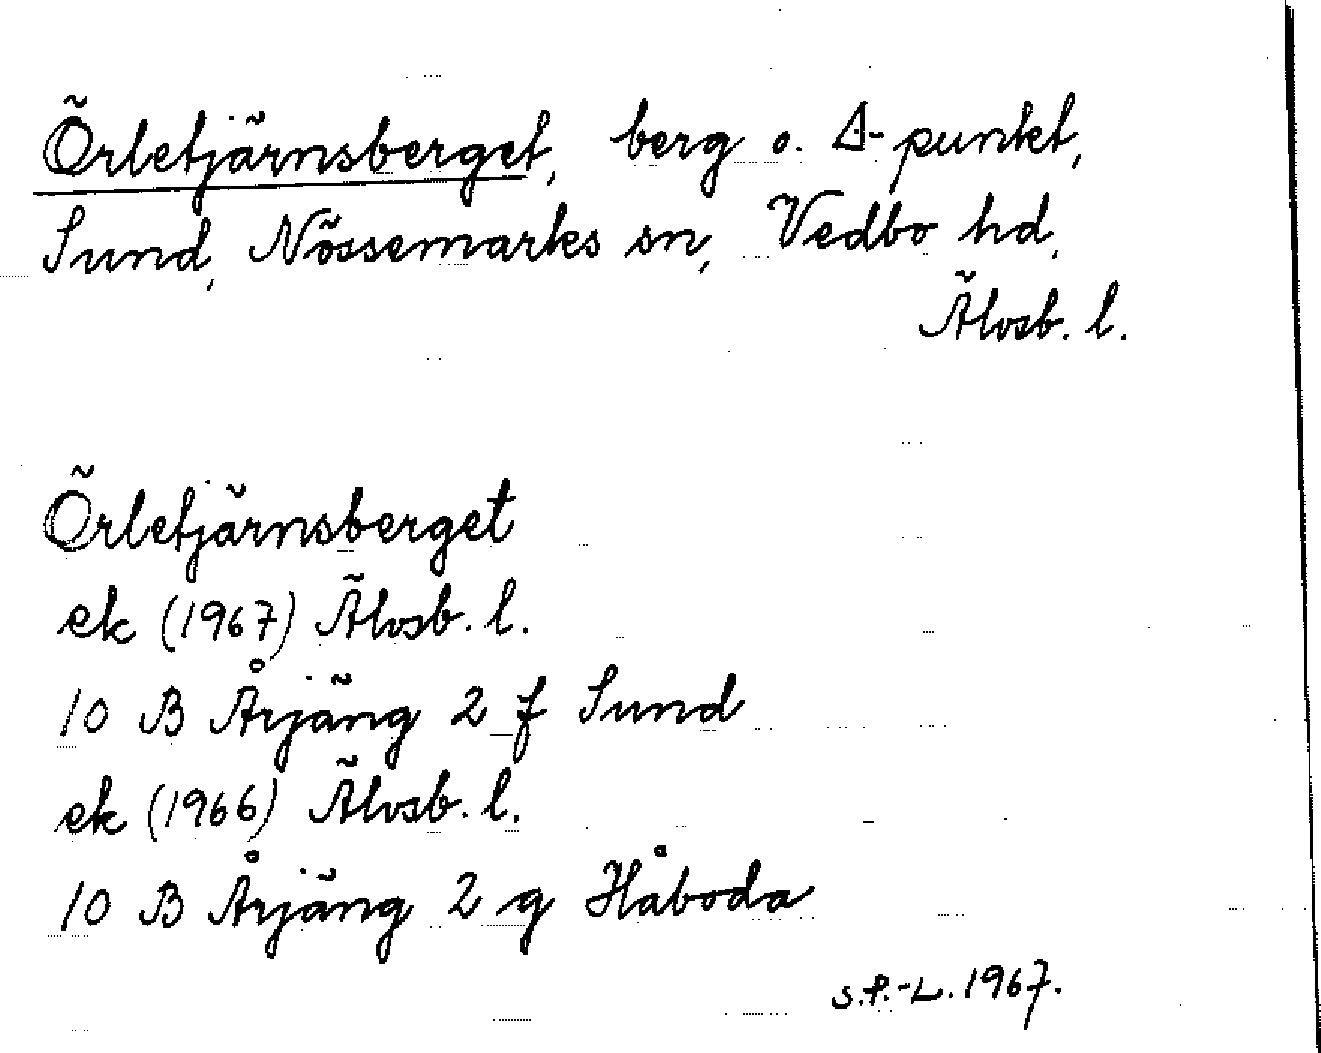 Örletjärnsberget, berg o. Δ-punkt,
Sund, Nössemarks sn, Vedbo hd,
Älvsb. l.
Örletjärnsberget
ek (1967) Älvsb. l.
10 B Årjäng 2 f Sund
ek (1966) Älvsb. l.
10 B Årjäng 2 g Håboda
S.F.-L. 1967.